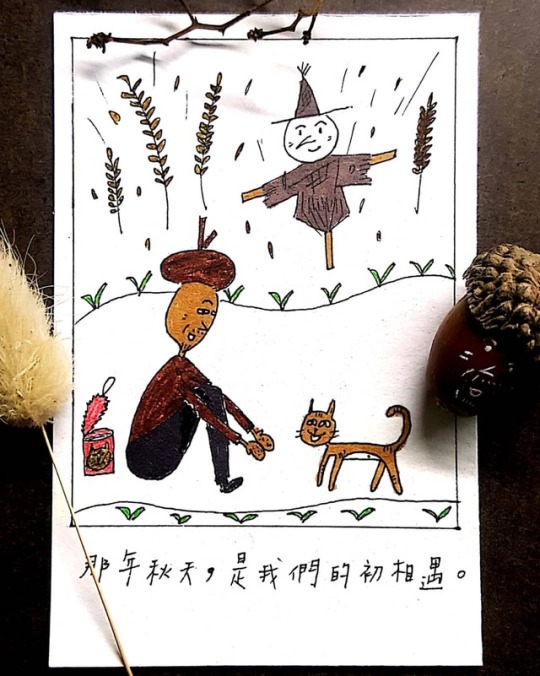 那年秋天，是我們的初相遇。